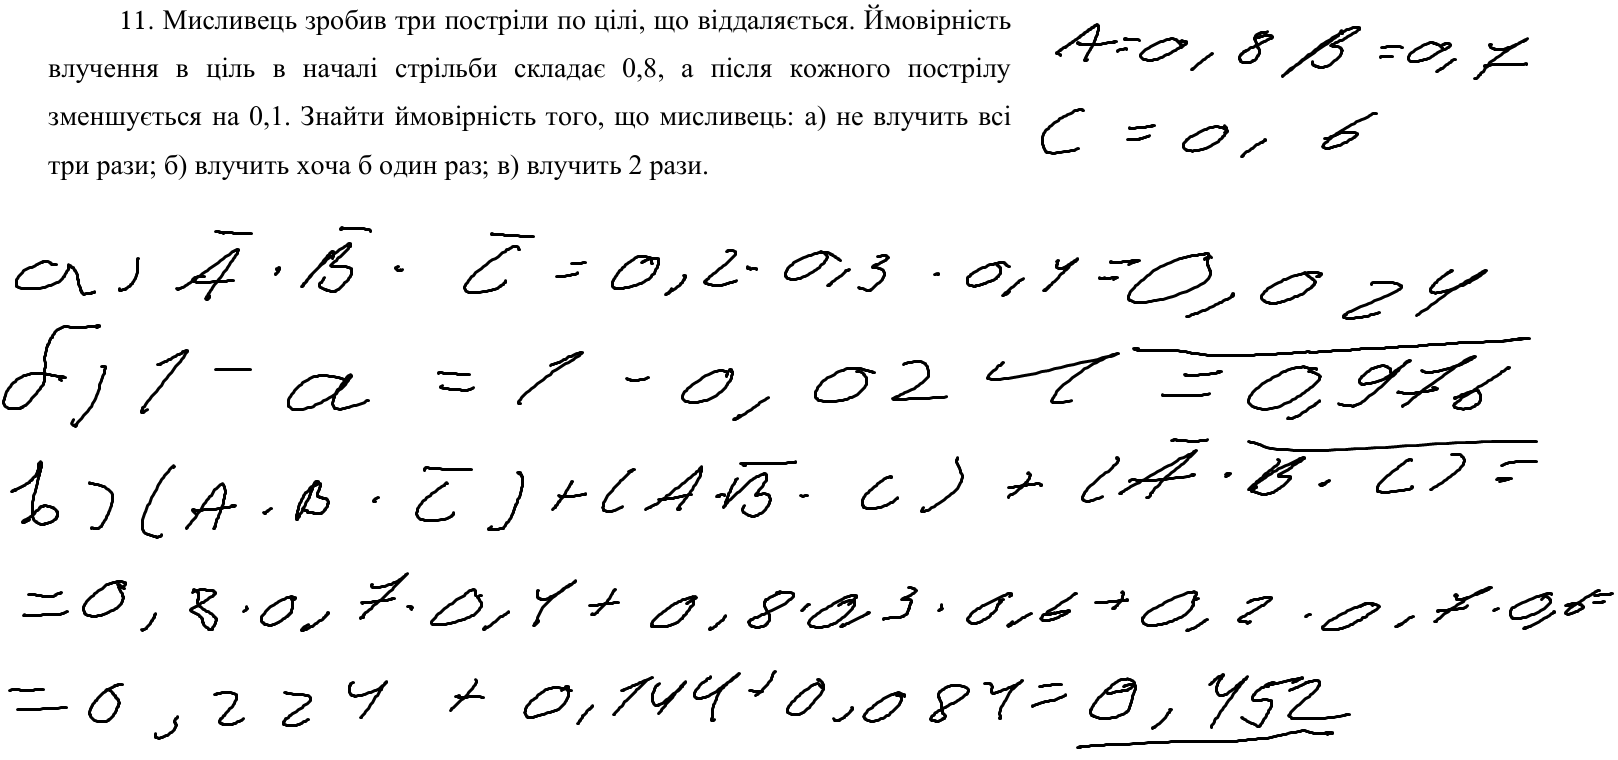 11. Мисливець зробив три постріли по цілі, що віддаляється. Ймовірність
влучення в ціль в началі стрільби складає 0,8, а після кожного пострілу
зменшується на 0,1. Знайти ймовірність того, що мисливець: а) не влучить всі
три рази; б) влучить хоча б один раз; в) влучить 2 рази.
A=0,8 B=0,7
C=0,6
а) A̅ · B̅ · C̅ = 0,2 · 0,3 · 0,4 = 0,024
б) 1 - а = 1 - 0,024 = 0,976
в) (A · B · C̅) + (A · B̅ · C) + (A̅ · B · C) =
= 0,8 · 0,7 · 0,4 + 0,8 · 0,3 · 0,6 + 0,2 · 0,7 · 0,6 =
= 0,224 + 0,144 + 0,084 = 0,452